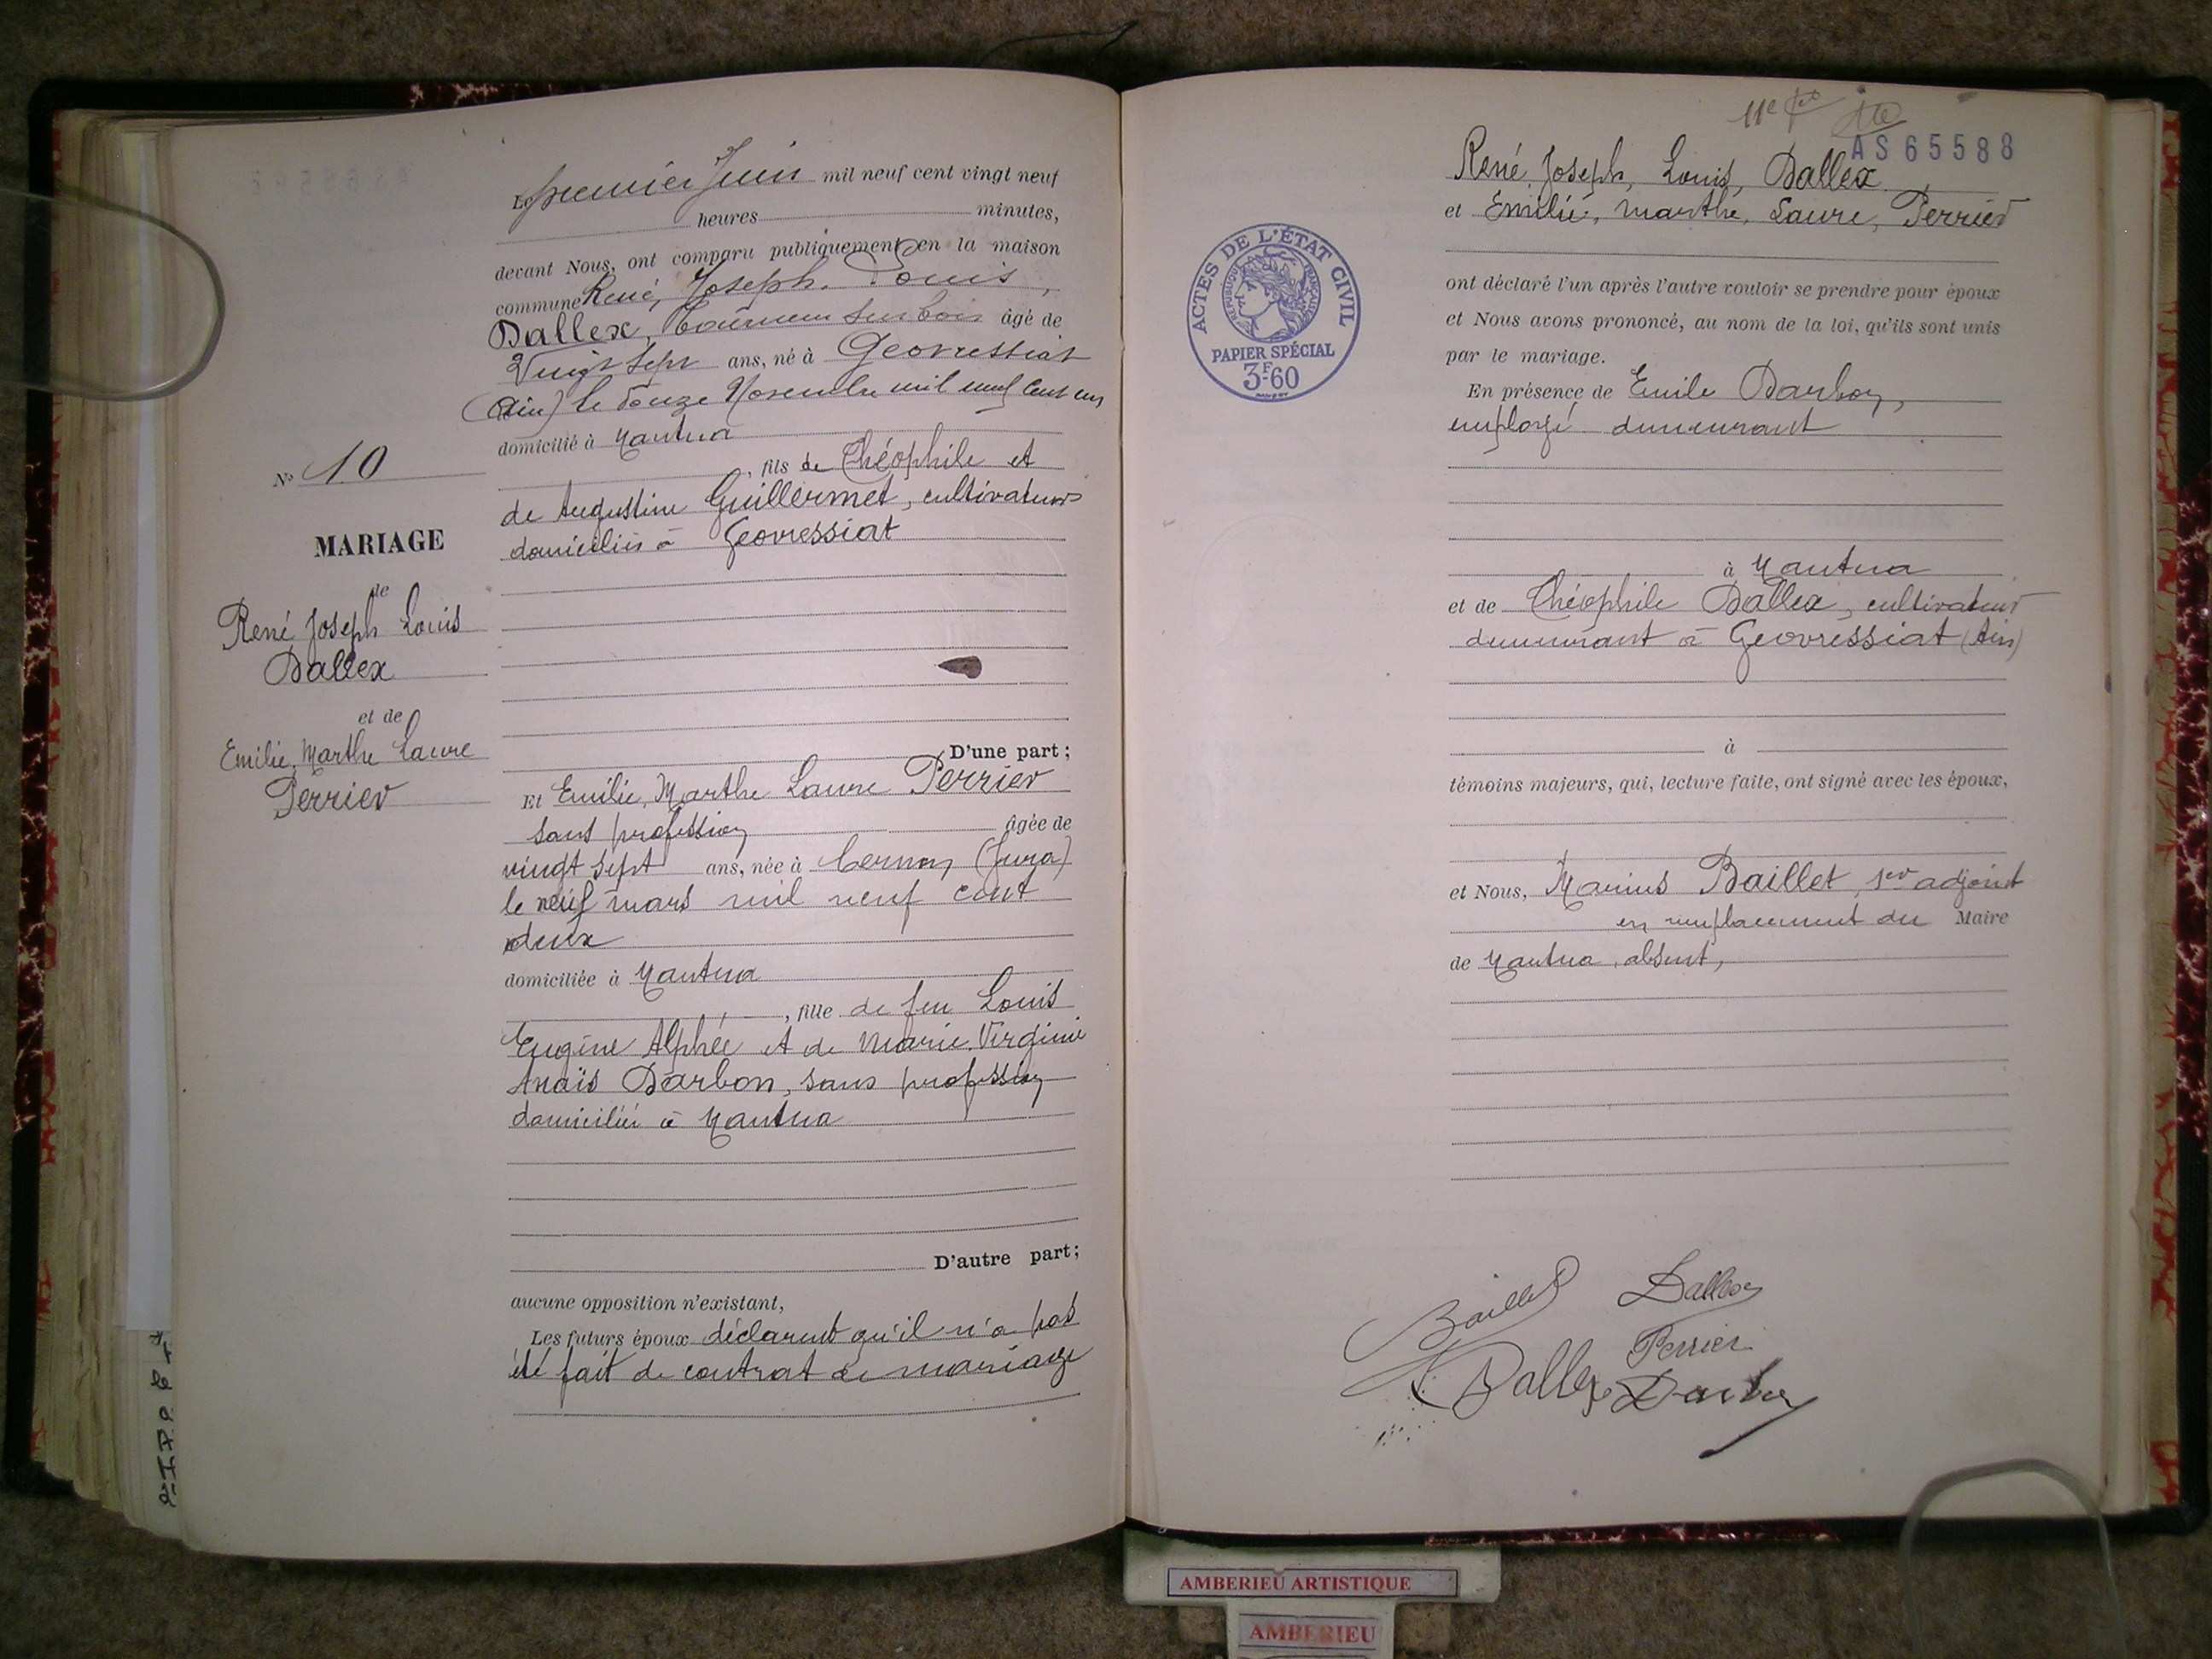 N° 10
MARIAGE
de
René Joseph Louis
Dallex
et de
Emilie, Marthe Laure
Perrier
Le premier Juin mil neuf cent vingt neuf
heures minutes,
devant Nous, ont comparu publiquement en la maison
commune René, Joseph, Louis,
Dallex, tourneur sur bois âgé de
Vingt sept ans, né à Geovressiat
(Ain) le douze Novembre mil neuf cent un
domicilié à Nantua
, fils de Théophile et
de Augustine Guillermet, cultivateurs
domiciliés à Geovressiat
D'une part;
Et Emilie, Marthe Laure Perrier
sans profession âgée de
vingt sept ans, née à Cernon (Jura)
le neuf mars mil neuf cent
deux
domiciliée à Nantua
, fille de feu Louis
Eugène Alphée et de Marie Virginie
Anaïs Darbon, sans profession
domiciliée à Nantua
D'autre part;
aucune opposition n'existant,
Les futurs époux déclarent qu'il n'a pas
été fait de contrat de mariage
11e
AS65588
René, Joseph, Louis, Dallex
et Emilie, Marthe, Laure, Perrier
ACTES DE L'ÉTAT CIVIL
REPUBLIQUE FRANÇAISE
PAPIER SPÉCIAL
3F60
ont déclaré l'un après l'autre vouloir se prendre pour époux
et Nous avons prononcé, au nom de la loi, qu'ils sont unis
par le mariage.
En présence de Emile Darbon,
employé demeurant
à Nantua
et de Théophile Dallex, cultivateur
demeurant à Geovressiat (Ain)
à
témoins majeurs, qui, lecture faite, ont signé avec les époux,
et Nous, Marius Baillet, 1er adjoint
en remplacement du Maire
de Nantua, absent,
Baillet Dallex
Perrier
Dallex Darbon
AMBERIEU ARTISTIQUE
AMBERIEU